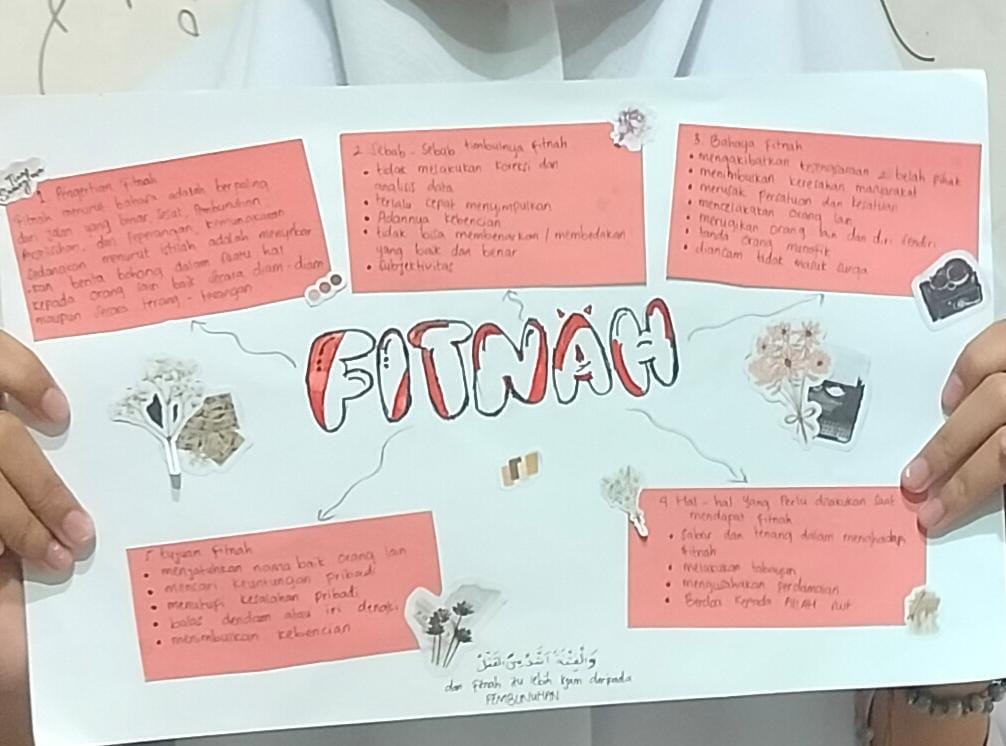 FITNAH
1. Pengertian fitnah
Fitnah menurut bahasa adalah berpaling
dari jalan yang benar, sesat,
dan Peperangan, kemungkaran
Sedangkan menurut istilah adalah menyebar
-kan berita bohong dalam suatu hal
kepada orang lain baik secara diam-diam
maupun secara terang-terangan
2. Sebab-Sebab timbulnya fitnah
• tidak melakukan koreksi dan
analisis data
• terlalu cepat menyimpulkan
• Adannya kebencian
• tidak bisa membenarkan / membedakan
yang baik dan benar
• Subjektivitas
3. Bahaya fitnah
• mengakibatkan 2 belah pihak
• menimbulkan keresahan masyarakat
• merusak Persatuan dan kesatuan
• mencelakakan orang lain
• merugikan orang lain dan diri sendiri
• tanda orang munafik
• diancam tidak masuk surga
4. Hal-hal yang Perlu dilakukan saat
mendapat fitnah
• Sabar dan tenang dalam menghadapi
fitnah
• melakukan tabayun
• mengusahakan perdamaian
• Berdoa kepada ALLAH swt
5. tujuan fitnah
• menjatuhkan nama baik orang lain
• mencari keuntungan pribadi
• menutupi kesalahan pribadi
• balas dendam atau iri dengki
• menimbulkan kebencian
وَالْفِتْنَةُ أَشَدُّ مِنَ الْقَتْلِ
dan fitnah itu lebih kejam daripada
PEMBUNUHAN